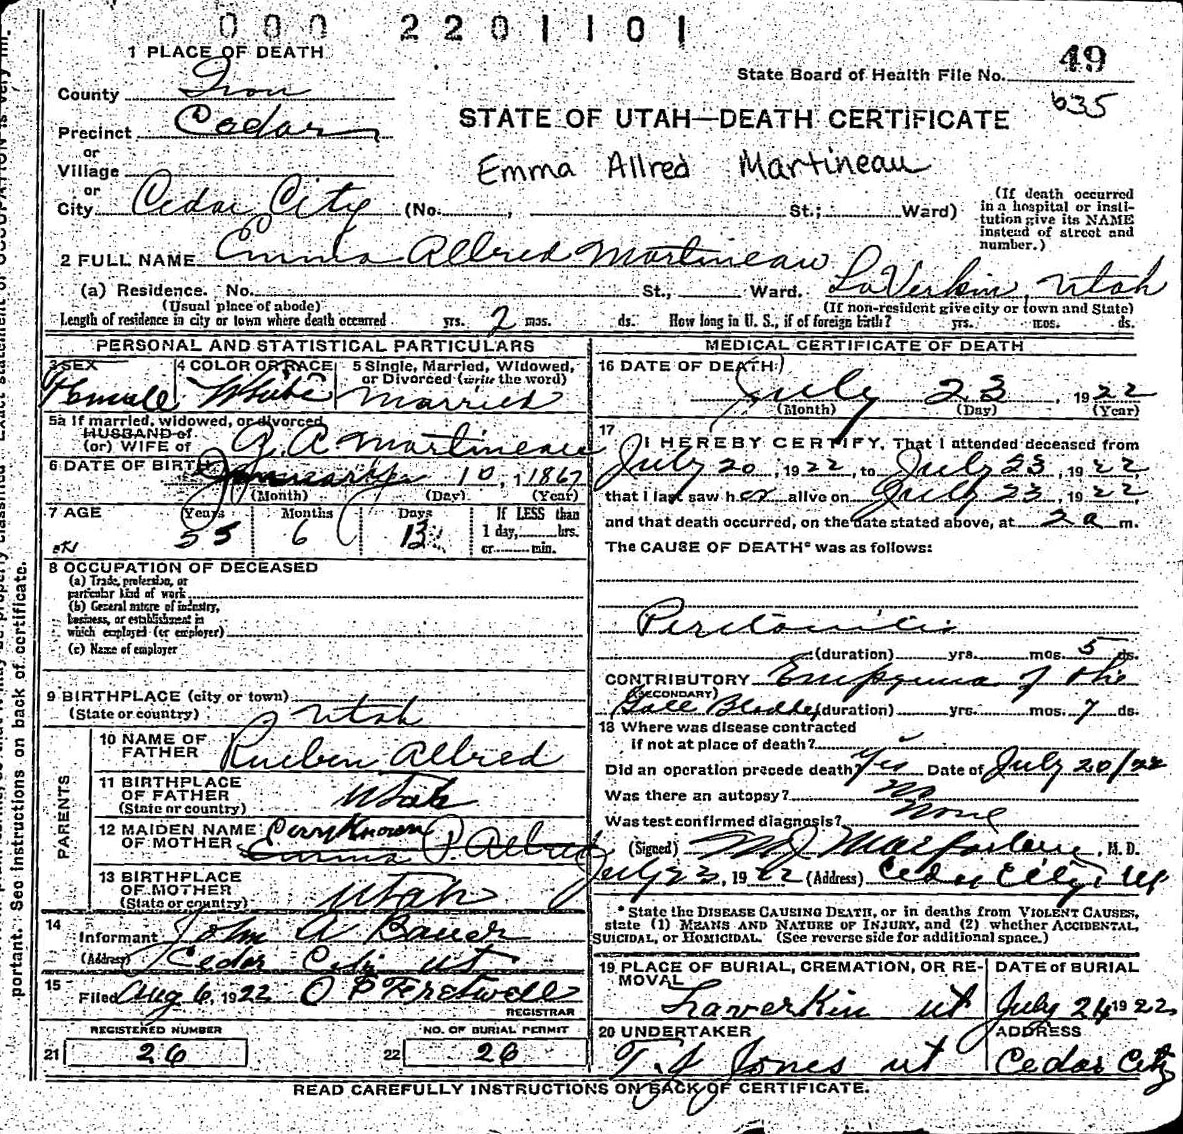 000 2201101
1 PLACE OF DEATH
49
State Board of Health File No.
635
County Iron
Precinct Cedar
STATE OF UTAH—DEATH CERTIFICATE
or
Village
Emma Allred Martineau
or
City Cedar City (No. , St.; Ward)
(If death occurred in a hospital or insti-
tution give its NAME
instead of street and
number.)
2 FULL NAME Emma Allred Martineau
(a) Residence. No. St., Ward. LaVerkin, Utah
(Usual place of abode) (If non-resident give city or town and State)
Length of residence in city or town where death occurred yrs. 2 mos. ds. How long in U. S., if of foreign birth? yrs. mos. ds.
PERSONAL AND STATISTICAL PARTICULARS
3 SEX
Female
4 COLOR OR RACE
White
5 Single, Married, Widowed,
or Divorced (write the word)
Married
5a If married, widowed, or divorced
HUSBAND of
(or) WIFE of G. A Martineau
6 DATE OF BIRTH January 10, 1867
(Month) (Day) (Year)
7 AGE Years Months Days If LESS than
55 6 13 1 day, hrs.
or min.
8 OCCUPATION OF DECEASED
(a) Trade, profession, or
particular kind of work
(b) General nature of industry,
business, or establishment in
which employed (or employer)
(c) Name of employer
9 BIRTHPLACE (city or town)
(State or country) Utah
PARENTS
10 NAME OF
FATHER Rueben Allred
11 BIRTHPLACE
OF FATHER
(State or country) Utah
12 MAIDEN NAME
OF MOTHER Emma P. Allred
13 BIRTHPLACE
OF MOTHER
(State or country) Utah
14
Informant John A Bauer
(Address) Cedar City ut
15
Filed Aug 6, 1922
REGISTRAR
REGISTERED NUMBER NO. OF BURIAL PERMIT
21 26 22 26
MEDICAL CERTIFICATE OF DEATH
16 DATE OF DEATH
July 23, 1922
(Month) (Day) (Year)
17
I HEREBY CERTIFY, That I attended deceased from
July 20, 1922, to July 23, 1922,
that I last saw her alive on July 23, 1922,
and that death occurred, on the date stated above, at 2 a m.
The CAUSE OF DEATH* was as follows:
Peritonitis
(duration) yrs. mos. 5 ds.
CONTRIBUTORY Empyema of the
(SECONDARY)
Gall Bladder (duration) yrs. mos. 7 ds.
18 Where was disease contracted
if not at place of death?
Did an operation precede death? Yes Date of July 20/22
Was there an autopsy? No
Was test confirmed diagnosis? None
(Signed) M J Macfarlane, M. D.
July 23, 1922 (Address) Cedar City, Ut
* State the DISEASE CAUSING DEATH, or in deaths from VIOLENT CAUSES,
state (1) MEANS AND NATURE OF INJURY, and (2) whether ACCIDENTAL,
SUICIDAL, or HOMICIDAL. (See reverse side for additional space.)
19 PLACE OF BURIAL, CREMATION, OR RE-
MOVAL
Laverkin ut
DATE of BURIAL
July 24 1922
20 UNDERTAKER
T. J Jones ut
ADDRESS
Cedar City
READ CAREFULLY INSTRUCTIONS ON BACK OF CERTIFICATE.
portant. See instructions on back of certificate.